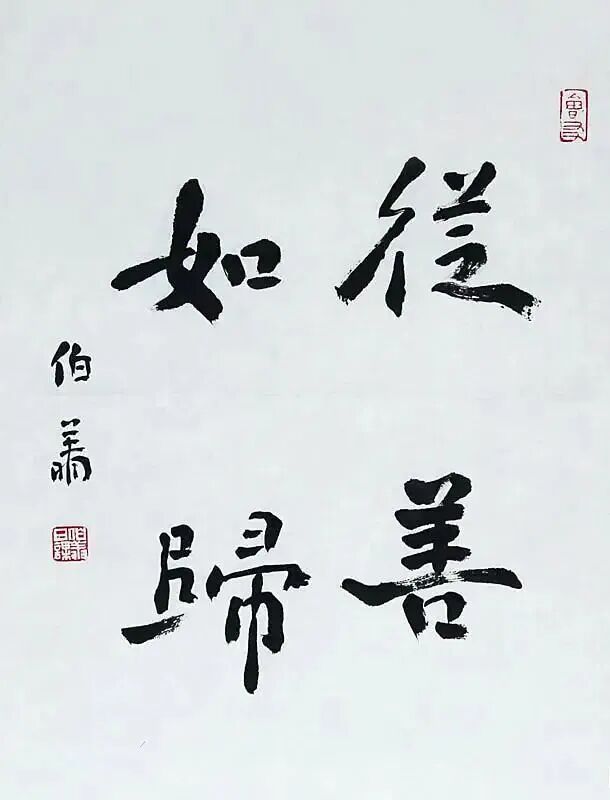 從善
如歸
伯翔